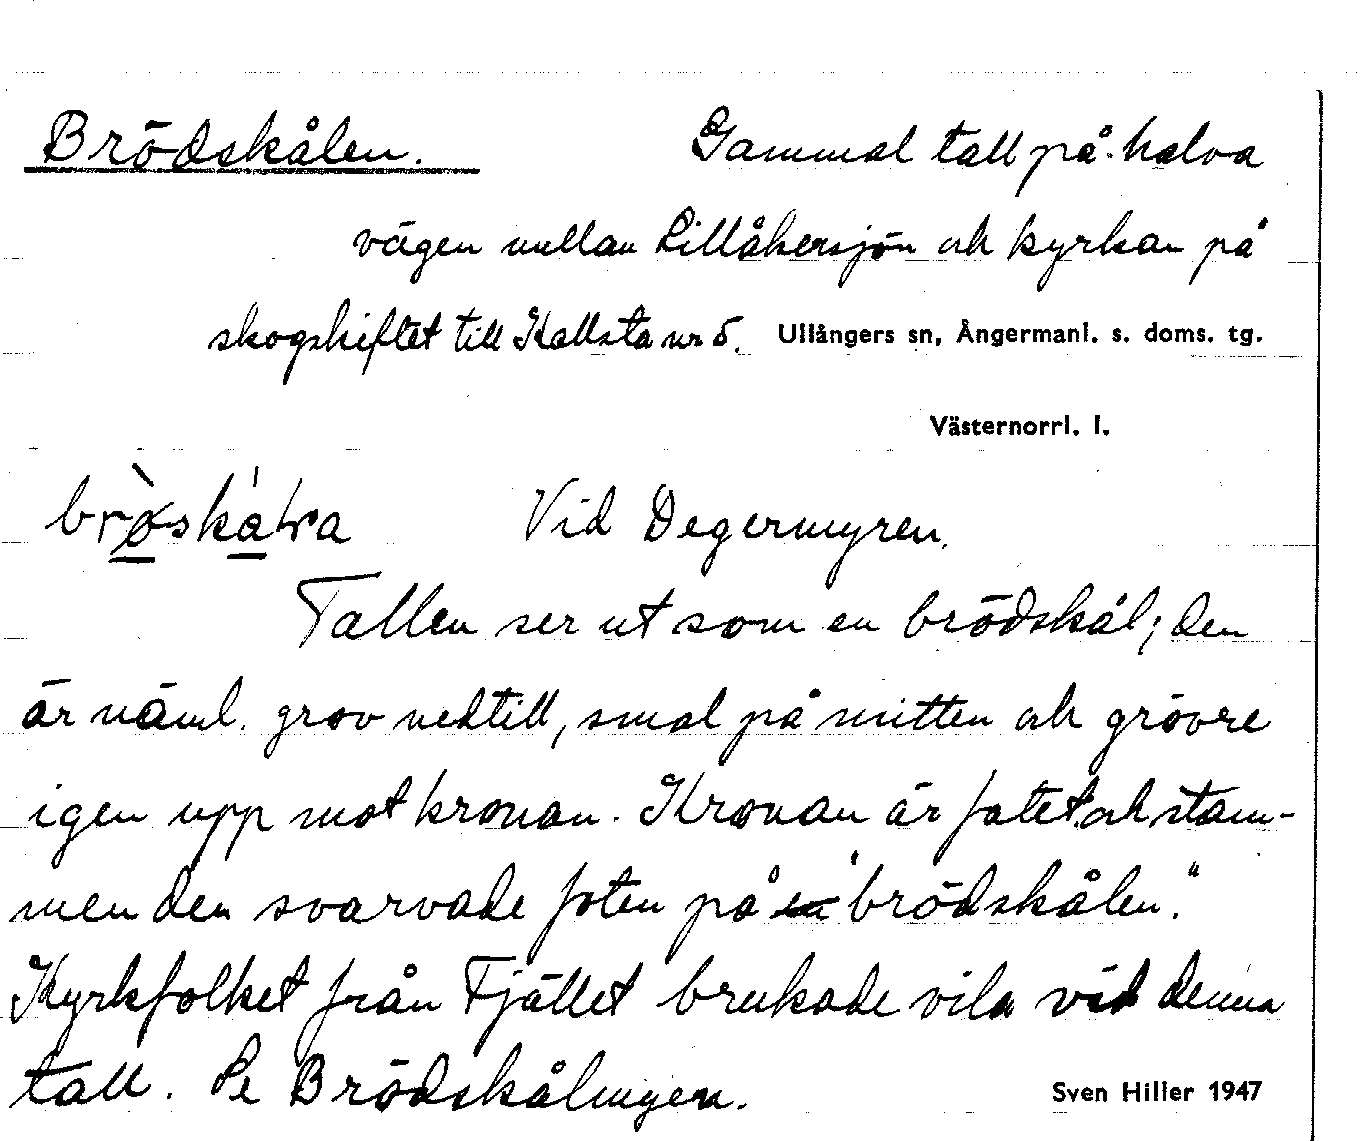 Brödskålen. Gammal tall på halva
vägen mellan Lillåkersjön och kyrkan på
skogskiftet till Kallsta nr 5. Ullångers sn, Ångermanl. s. doms. tg.
Västernorrl. l.
Vid Degermyren.
Tallen ser ut som en brödskål; den
är näml. grov nedtill, smal på mitten och grövre
igen upp mot kronan. Kronan är fatet och stam-
men den svarvade foten på "brödskålen."
Kyrkfolket från Fjället brukade vila vid denna
tall. Se Brödskålmyren.
Sven Hiller 1947